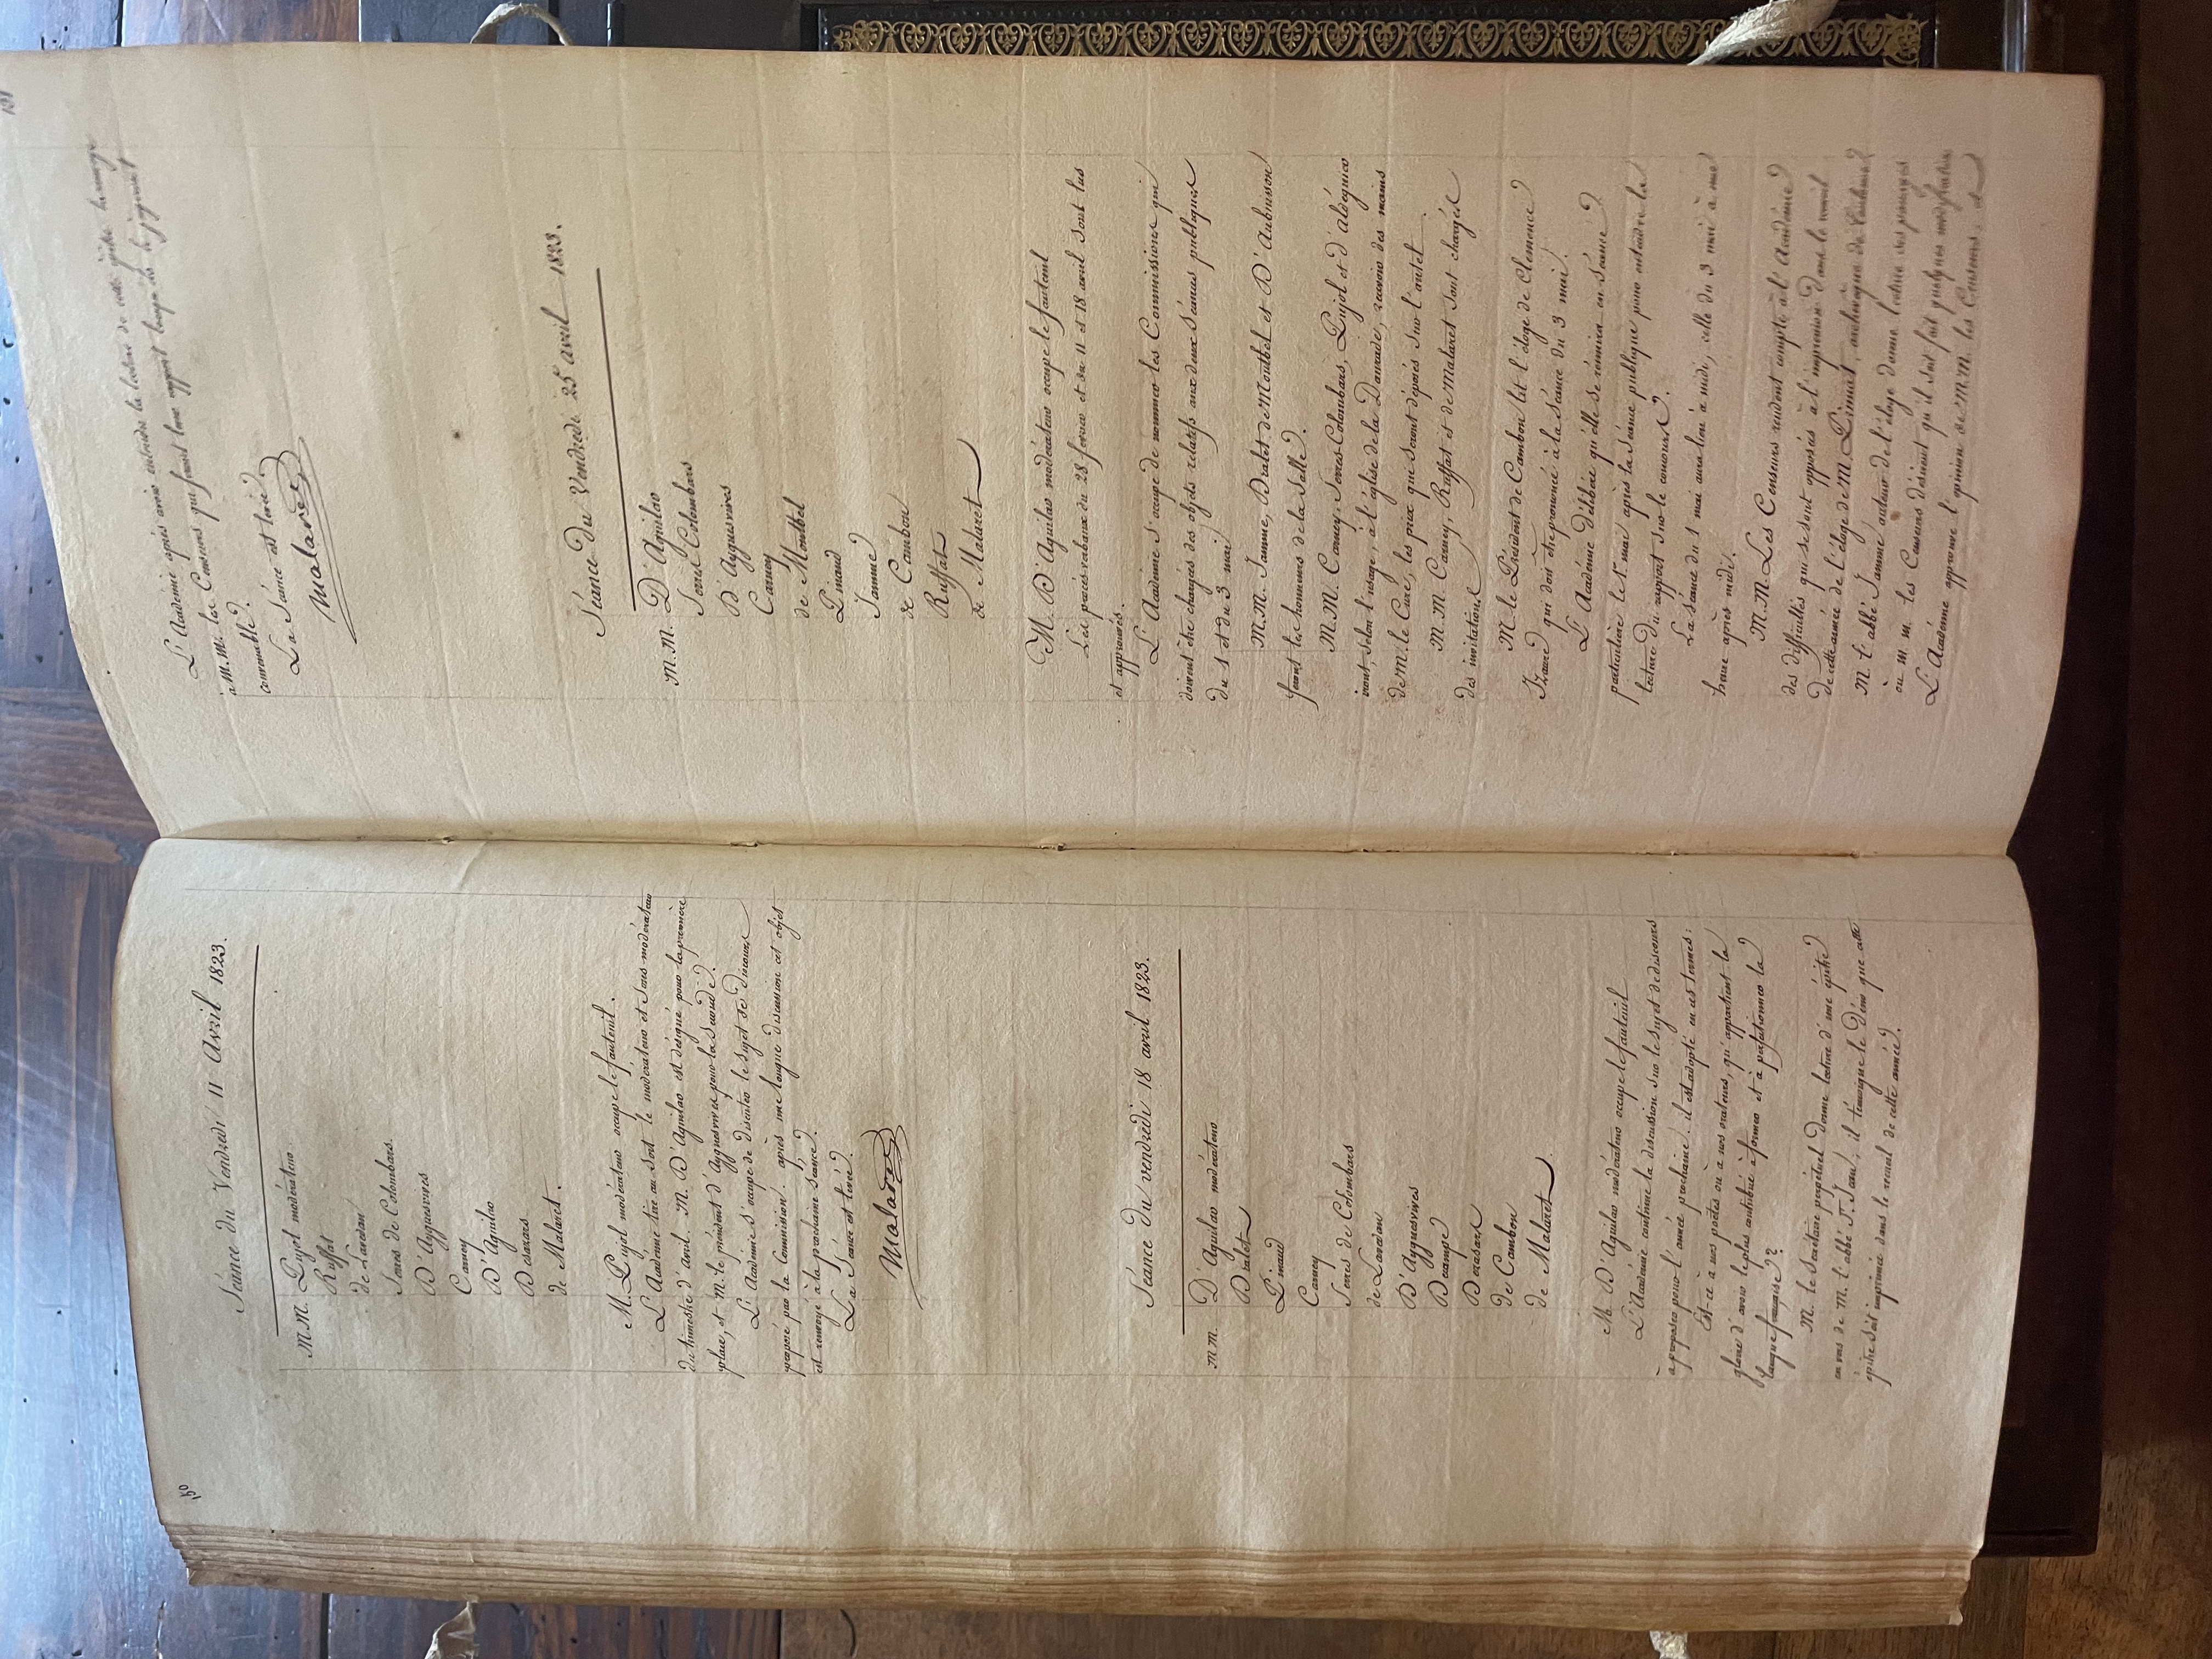 150
Séance du Vendredi 11 Avril 1823.
M.M. Pujol modérateur.
Ruffat
de Lavedan
Serres de Colombars.
D'Ayguesvives
Carney
D'Aguilar
Desazars
de Malaret.
M. Pujol modérateur occupe le fauteuil.
L'Académie tire au sort le modérateur et sous-modérateur
du trimestre d'avril. M. D'Aguilar est désigné pour la première
place, et M. le président d'Ayguesvives pour la seconde.
L'Académie s'occupe de discuter le sujet de discours
proposé par la Commission. après une longue discussion cet objet
est renvoyé à la prochaine séance.
La Séance est levée.
Malaret
Séance du vendredi 18 avril 1823.
M.M. D'Aguilar modérateur
Dralet
Pinaud
Carney
Serres de Colombars
de Lavedan
D'Ayguesvives
Decampe
Desazars
de Cambon
de Malaret
M. D'Aguilar modérateur occupe le fauteuil
L'Académie continue la discussion sur le sujet de discours
à proposer pour l'année prochaine: il est adopté en ces termes:
Est-ce à nos poètes ou à nos orateurs, qu'appartient la
gloire d'avoir le plus contribué à former et à perfectionner la
langue française?
M. le Secrétaire perpétuel donne lecture d'une épitre
en vers de M. l'abbé St. Jean; il témoigne le désir que cette
épitre soit imprimée dans le recueil de cette année.
151
L'Académie après avoir entendu la lecture de cette épitre la renvoye
à M.M. les Censeurs qui feront leur rapport lorsqu'ils le jugeront
convenable.
La Séance est levée.
Malaret
Séance du Vendredi 25 avril 1823.
M.M. D'Aguilar
Serres Colombars
D'Ayguesvives
Carney
de Montbel
Pinaud
Jamme
de Cambon
Ruffat
de Malaret
M. D'Aguilar modérateur occupe le fauteuil
Les procès verbaux du 28 fevrier et du 11 et 18 avril sont lus
et approuvés.
L'Académie s'occupe de nommer les Commissions qui
doivent être chargées des objets relatifs aux deux séances publiques
du 1 et du 3 mai
M.M. Jamme, Dralet de Montbel et D'Aubuisson
feront les honneurs de la Salle.
M.M. Carney, Serres-Colombars, Pujol et d'Aldéguier
iront, selon l'usage, à l'église de la Daurade, recevoir des mains
de M. le Curé, les prix qui seront déposés sur l'autel
M.M. Carney, Ruffat et de Malaret sont chargés
des invitations
M. le Président de Cambon lit l'éloge de Clémence
Izaure qui doit être prononcé à la Séance du 3 mai.
L'Académie délibère qu'elle se réunira en séance
particulière le 1 mai après la séance publique pour entendre la
lecture du rapport sur le concours.
La séance du 1 mai aura lieu à midi, celle du 3 mai à une
heure après midi.
M.M. Les Censeurs rendent compte à l'Académie
des difficultés qui se sont opposées à l'impression dans le recueil
de cette année de l'éloge de M. Primat, archevêque de Toulouse.
M. l'abbé Jamme auteur de l'éloge donne lecture des passages
où M.M. les Censeurs désirent qu'il soit fait quelques modifications
L'Académie approuve l'opinion de M.M. les Censeurs, et